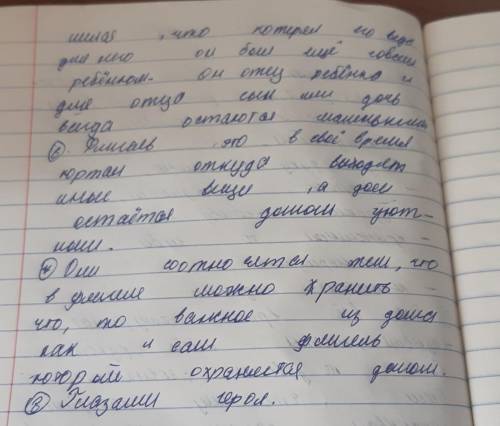 что потерял но ещё
для него он был ещё совсем
ребёнком. он отец ребёнка и
для отца сын или дочь
всегда остаются маленькими
⑥ Флигель это в своё время
портал откуда выходят
иные вещи, а дом
остаётся домом уют-
ным.
Они соотносятся тем, что
в флигеле можно хранить
что, то важное из дома
как и сам флигель
который охраняется домом.
⑧ Глазами героя.